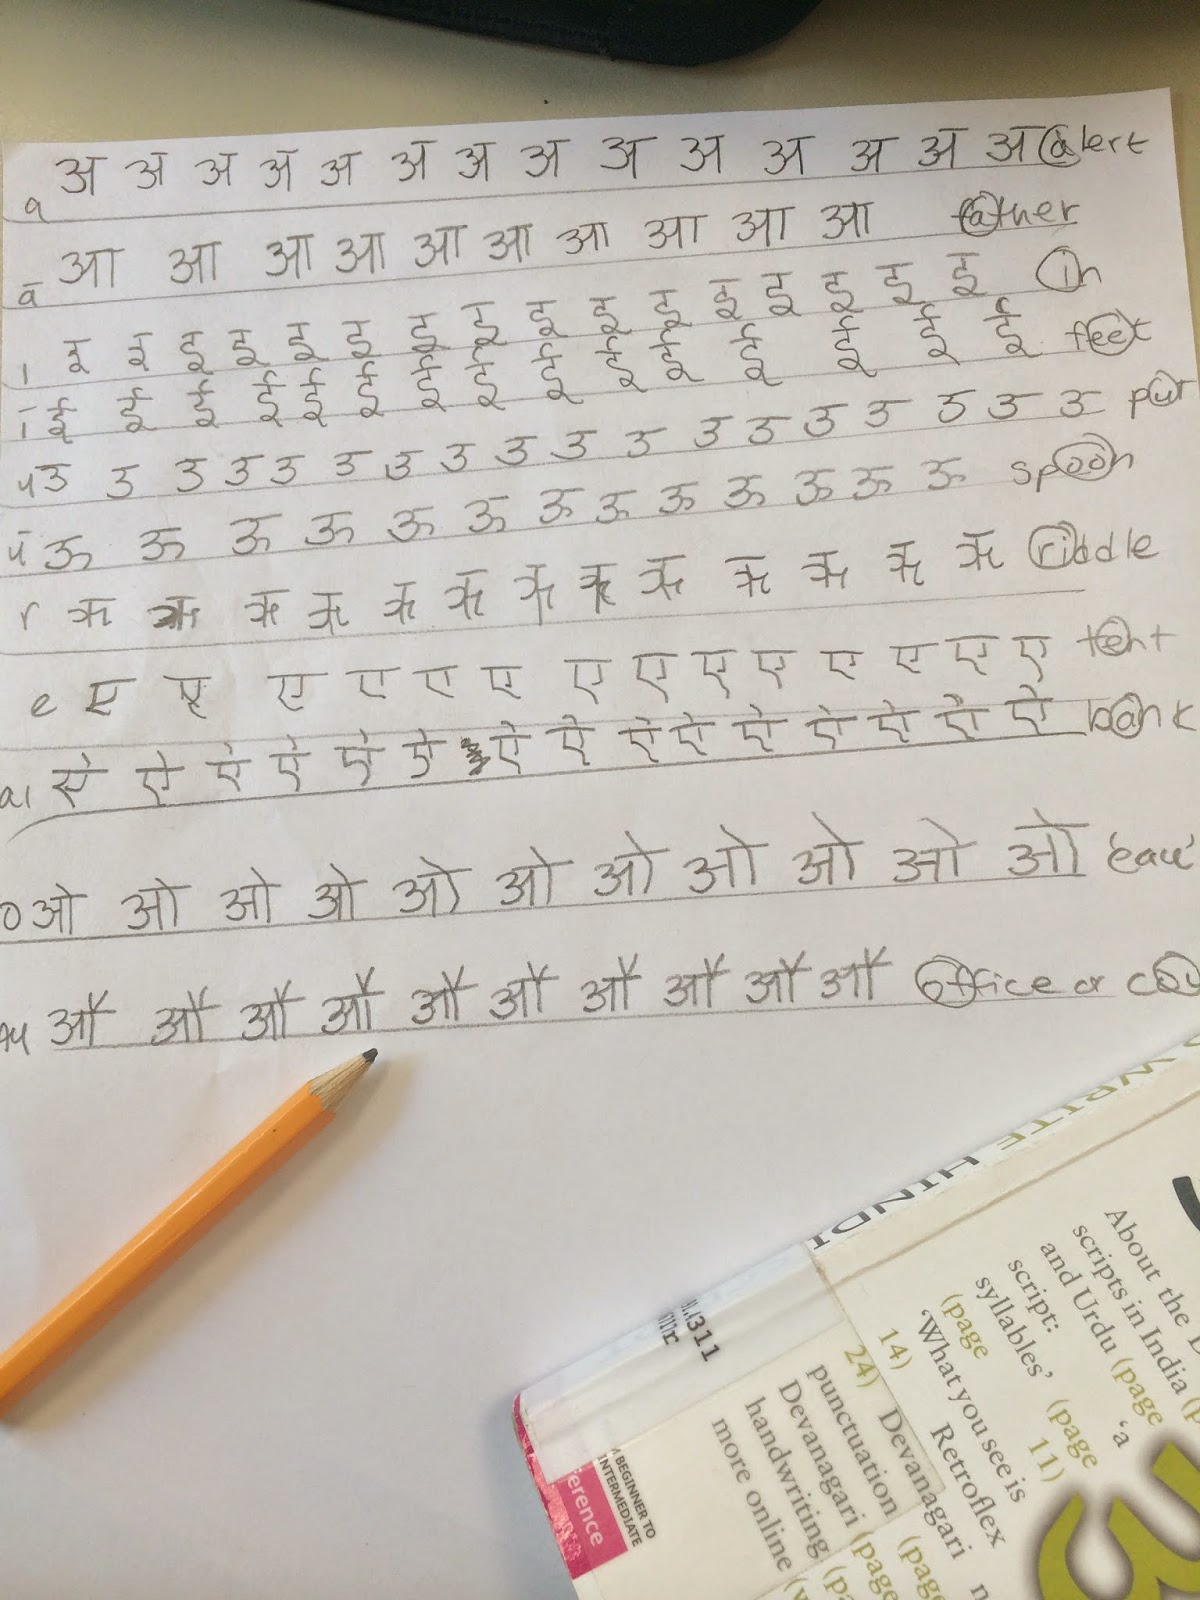 a अ अ अ अ अ अ अ अ अ अ अ अ अ अ alert
ā आ आ आ आ आ आ आ आ आ आ father
i इ इ इ इ इ इ इ इ इ इ इ इ इ इ इ in
ī ई ई ई ई ई ई ई ई ई ई ई ई ई ई feet
u उ उ उ उ उ उ उ उ उ उ उ उ उ उ उ उ उ put
ū ऊ ऊ ऊ ऊ ऊ ऊ ऊ ऊ ऊ ऊ ऊ ऊ ऊ spoon
r ऋ ऋ ऋ ऋ ऋ ऋ ऋ ऋ ऋ ऋ ऋ ऋ ऋ riddle
e ए ए ए ए ए ए ए ए ए ए ए ए ए ए tent
ai ऐ ऐ ऐ ऐ ऐ ऐ ऐ ऐ ऐ ऐ ऐ ऐ ऐ ऐ ऐ bank
o ओ ओ ओ ओ ओ ओ ओ ओ ओ ओ ओ 'eau'
au औ औ औ औ औ औ औ औ औ औ office or
WRITE HINDI
About the
scripts in India
and Urdu (page
script: 'a
syllables' (page
(page 11)
'What you see is
14) Retroflex
24) Devanagari
punctuation (page
Devanagari (page
handwriting
more online
311
BEGINNER TO
INTERMEDIATE